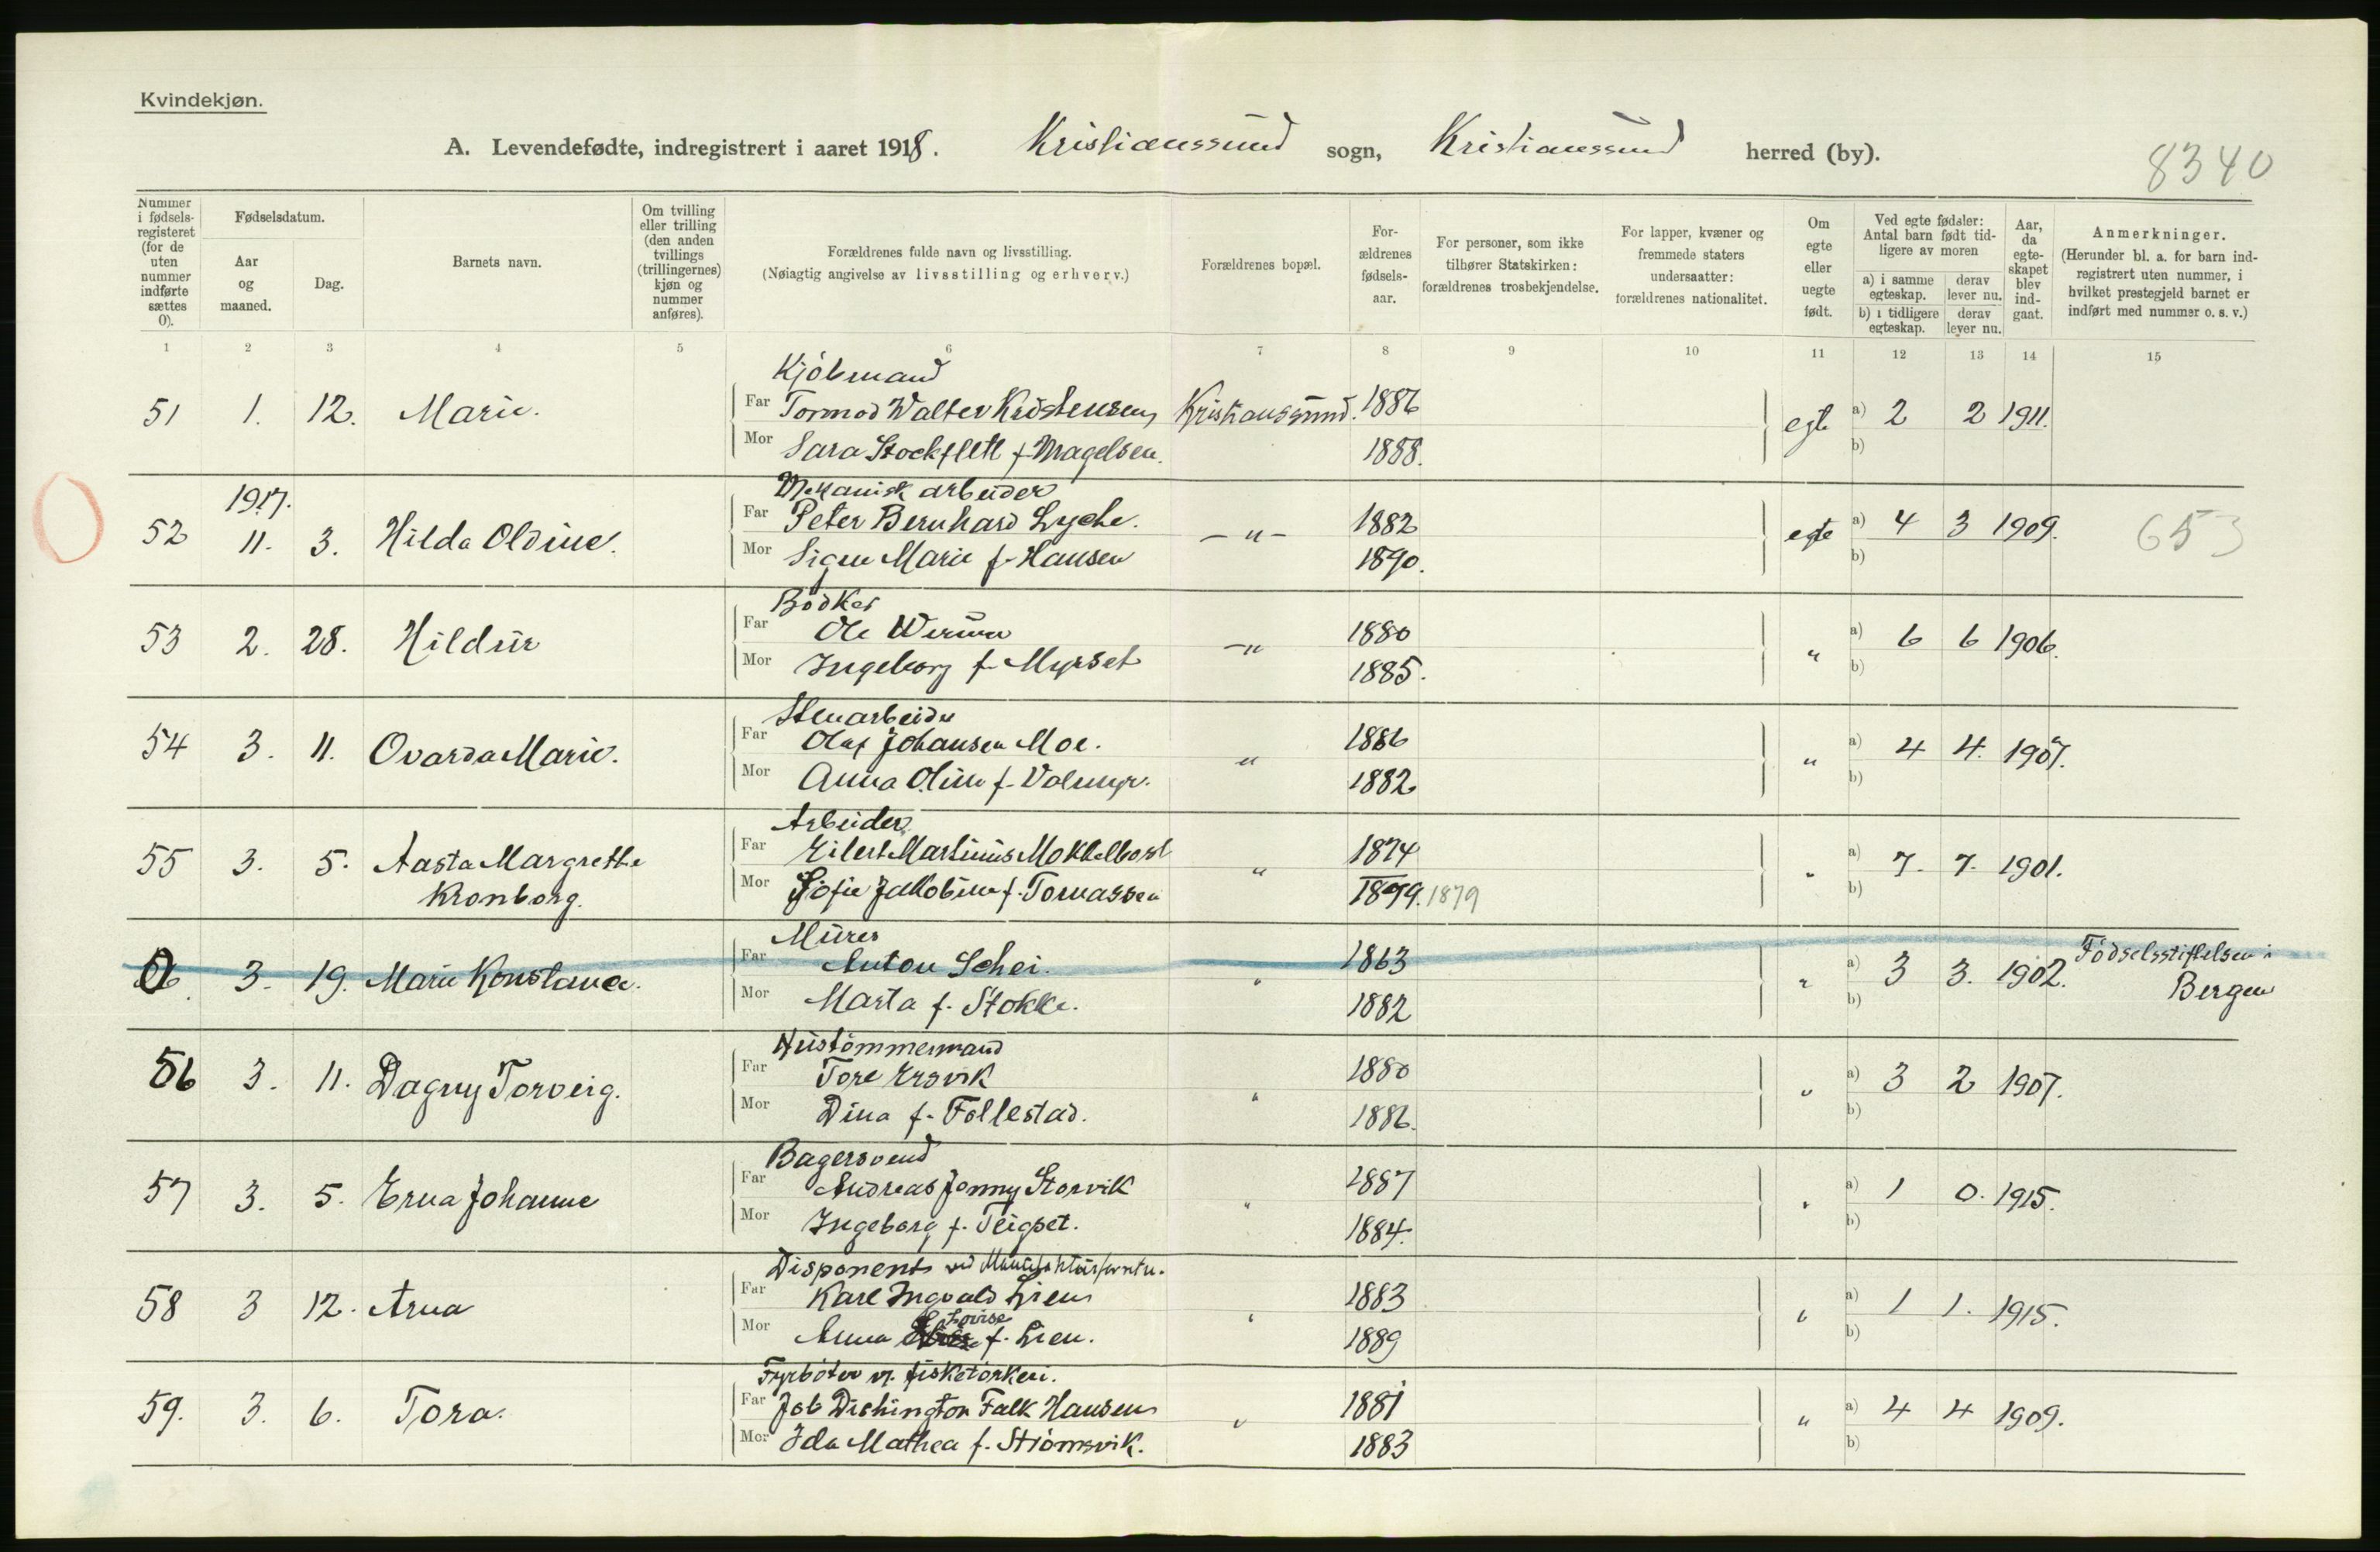 Kvindekjøn.
A. Levendefødte, indregistrert i aaret 1918. Kristianssund sogn, Kristianssund herred (by).
8340
Nummer i fødsels-registeret (for de uten nummer indførte sættes 0).
Fødselsdatum.
Aar og maaned.
Dag.
Barnets navn.
Om tvilling eller trilling (den anden tvillings (trillingernes) kjøn og nummer anføres).
Forældrenes fulde navn og livsstilling.
(Nøiagtig angivelse av livsstilling og erhverv.)
Forældrenes bopæl.
For-ældrenes fødsels-aar.
For personer, som ikke tilhører Statskirken: forældrenes trosbekjendelse.
For lapper, kvæner og fremmede staters undersaatter: forældrenes nationalitet.
Om egte eller uegte født.
Ved egte fødsler: Antal barn født tid-ligere av moren
a) i samme egteskap. derav lever nu.
b) i tidligere egteskap. derav lever nu.
Aar, da egte-skapet blev ind-gaat.
Anmerkninger.
(Herunder bl. a. for barn ind-registrert uten nummer, i hvilket prestegjeld barnet er indført med nummer o. s. v.)
1 2 3 4 5 6 7 8 9 10 11 12 13 14 15
Kjöbmand
51 1. 12. Marie. Far Tormod Walter Kristensen Kristianssund. 1886 egte a) 2 2 1911.
Mor Sara Stockfleth f. Magelsen. 1888. b)
1917. Mekanisk arbeider
52 11. 3. Hilda Oldine. Far Peter Bernhard Lyche. -"- 1882 egte a) 4 3 1909. 653
Mor Signe Marie f. Hansen 1890. b)
Bödker
53 2. 28. Hildur Far Ole -" 1880 " a) 6 6 1906.
Mor Ingeborg f. Myrset 1885. b)
Stenarbeider
54 3. 11. Ovarda Marie. Far Olaf Johansen Moe. " 1886 " a) 4 4. 1907.
Mor Anna Oline f. 1882 b)
Arbeider
55 3. 5. Aasta Margrethe Far Eilert Martinius Mokkelbost " 1874 " a) 7. 7. 1901.
Kronborg. Mor Sofie Jakobine f. Tomassen 1879. 1879 b)
Murer
0 3. 19. Marie Konstance. Far Anton Schei. " 1863 " a) 3 3. 1902. Födselsstiftelsen i
Mor Marta f. Stokke. 1882 b) Bergen
Hustömmermand
56 3. 11. Dagny Torveig. Far Tore Ersvik " 1880 " a) 3 2 1907.
Mor Dina f. Follestad. 1886. b)
Bagersvend
57 3. 5. Erna Johanne Far Andreas Jonny Storvik " 1887 " a) 1 0. 1915.
Mor Ingeborg f. Teigset. 1884. b)
Disponent ved
58 3 12. Arna Far Karl Ingvald Lien " 1883 " a) 1 1. 1915.
Mor Anna Lovise f. Lien. 1889 b)
Fyrböter v. fisketörkeri.
59. 3. 6. Tora. Far Job Dishington Falk Hansen " 1881 " a) 4 4 1909.
Mor Ida Mathea f. Strömsvik. 1883 b)